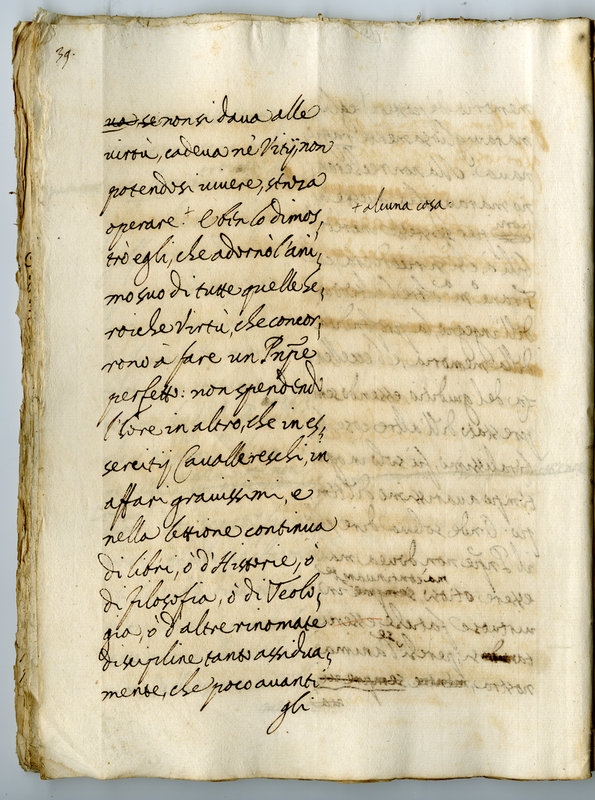 39.
ua se non si daua alle
uirtù, cadeua ne Vitij, non
potendosi uiuere, senza
operare + E ben lo dimos,
+ alcuna cosa.
trò egli, che adornò l'ani,
mo suo di tutte quelle he,
roiche Virtù, che concor,
rono à fare un Pnpe
perfetto: non spendendo
l'hore in altro, che in es,
sercitij Cauallereschi, in
affari grauissimi, e
nella lettione continua
di libri, ò d'Historie, ò
di filosofia, ò di Teolo,
gia, ò d'altre rinomate
discipline, tanto assidua,
mente, che poco auanti
gli